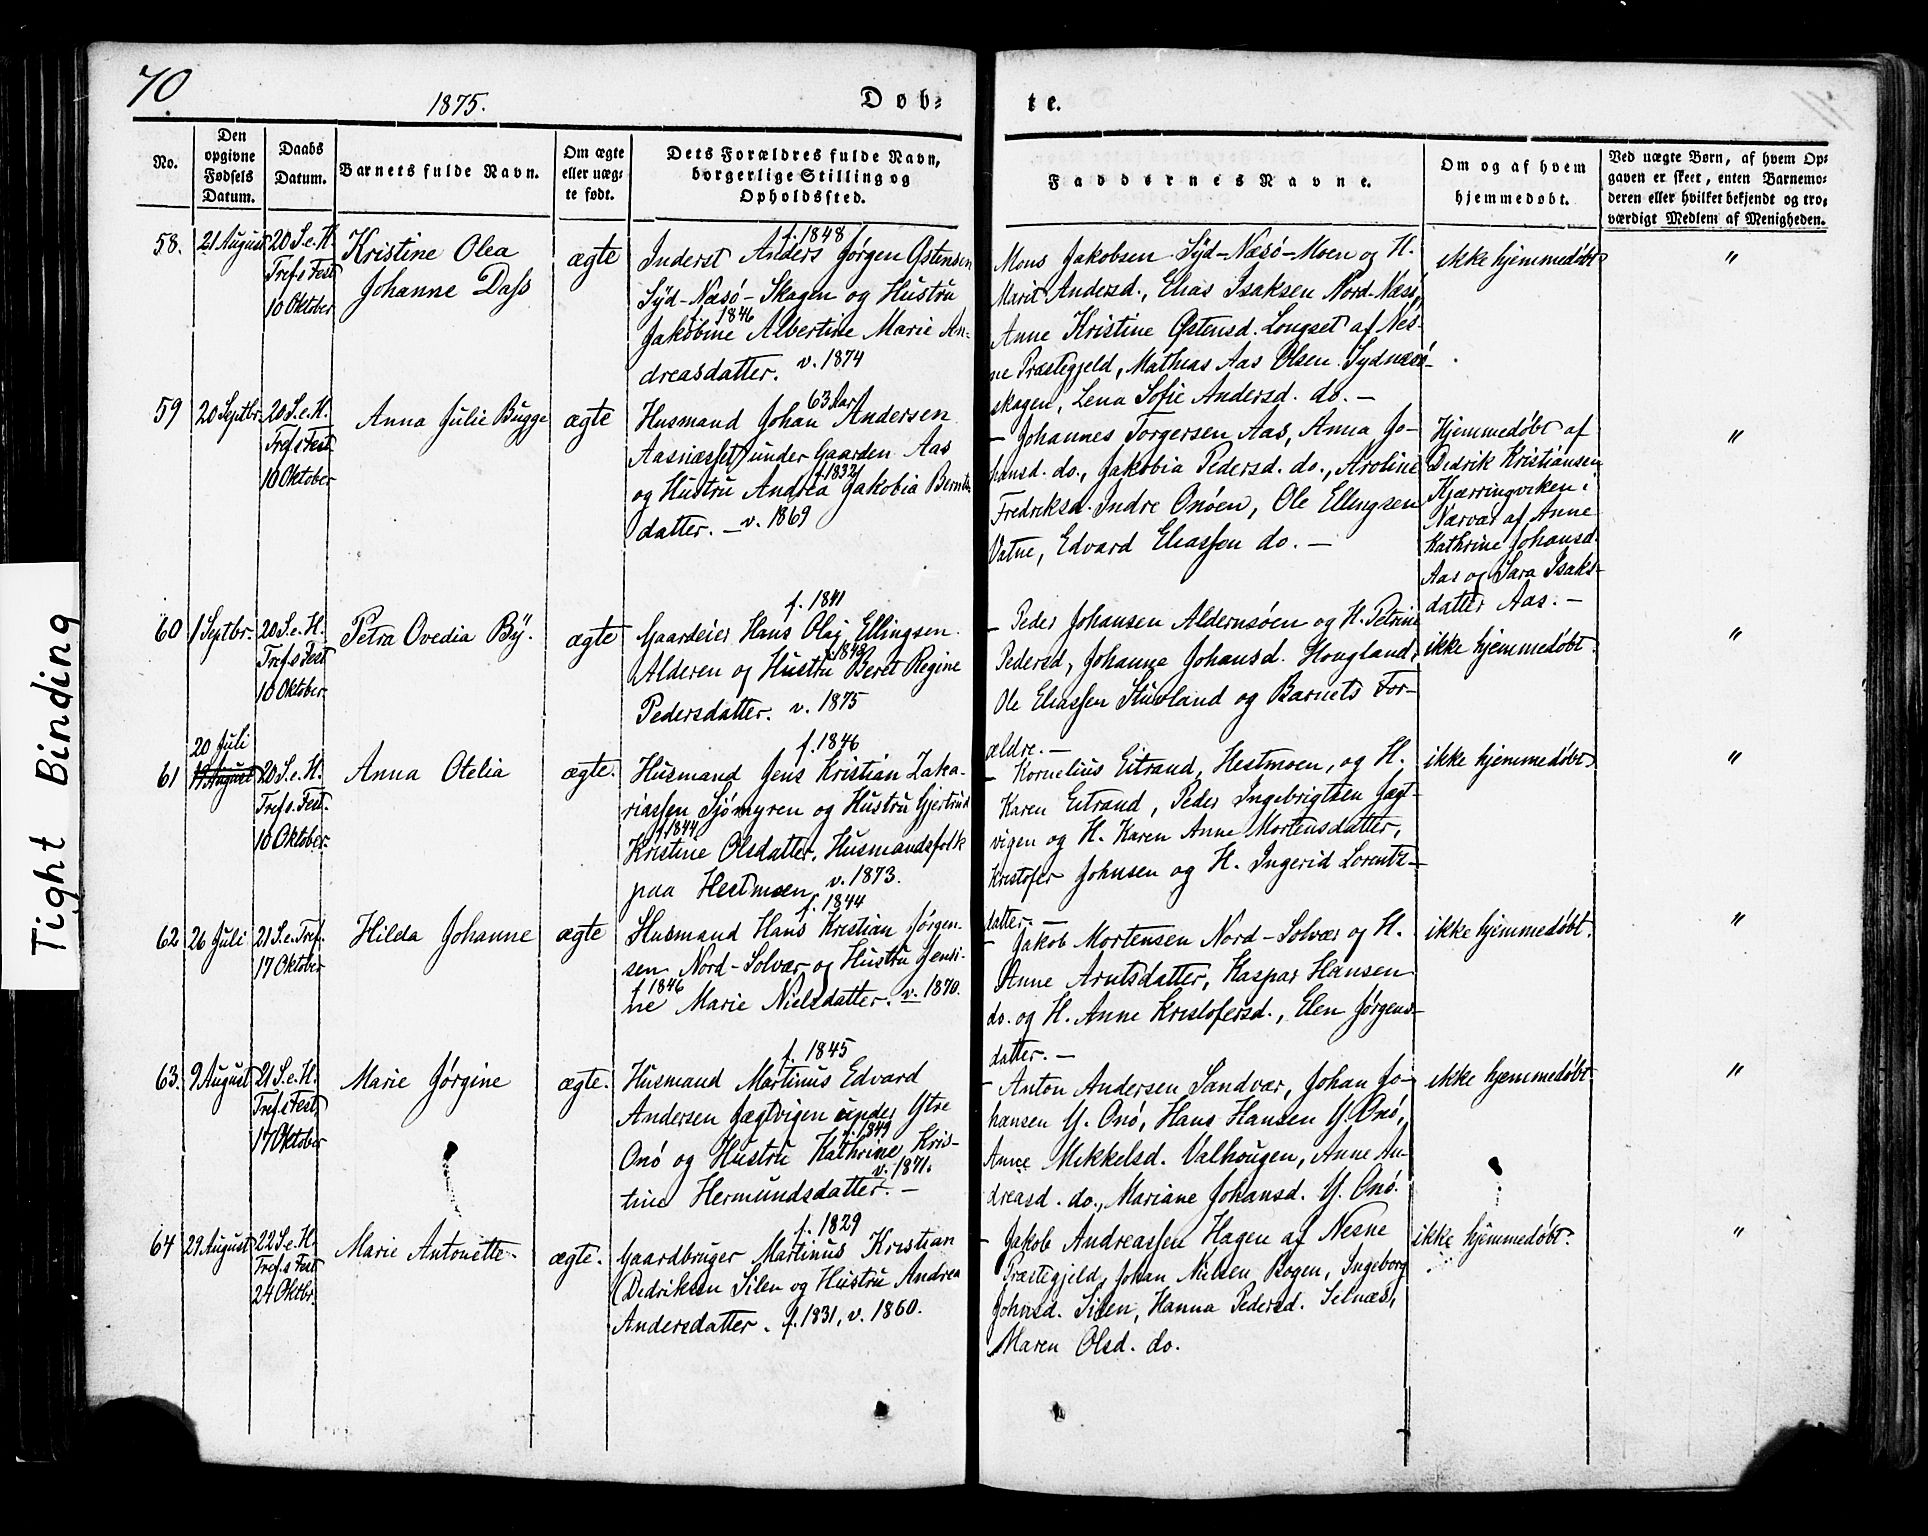 70.
1875.
Døb-
te.
No.
Den
opgivne
Fødsels
Datum.
Daabs
Datum.
Barnets fulde Navn.
Om ægte
eller uæg-
te født.
Dets Forældres fulde Navn,
borgerlige Stilling og
Opholdssted.
Faddernes Navne.
Om og af hvem
hjemmedøbt.
Ved uægte Børn, af hvem Op-
gaven er skeet, enten Barnemo-
deren eller hvilket bekjendt og tro-
værdigt Medlem af Menigheden.
58.
21 August
20 S.e.H.
Tref.s Fest
10 Oktober
Kristine Olea
Johanne Dass
ægte
f. 1848
Inderst Anders Jørgen Østensen
Syd-Næsø-Skagen og Hustru
f. 1846
Jakobine Albertine Marie An-
dreasdatter. v. 1874
Mons Jakobsen Syd-Næsø-Moen og H.
Marit Andersd., Elias Isaksen Nord-Næsø,
Anne Kristine Østensd. Longset af Nes-
ne Præstegjeld, Mathias Aas Olsen Sydnæsø-
skagen, Lena Sofie Andersd. do. —
ikke hjemmedøbt
"
59
20 Septbr.
20 S.e.H.
Tref.s Fest
10 Oktober
Anna Julie Bugge
ægte
63 Aar
Husmand Johan Andersen
Aasnæsset under Gaarden Aas
f. 1832
og Hustru Andrea Jakobia Bernts-
datter. — v. 1869
— Johannes Torgersen Aas, Anna Jo-
hansd. do., Jakobia Pedersd. do., Aroline
Fredriksd. Indre Onøen, Ole Ellingsen
Vatne, Edvard Eliassen do. —
Hjemmedøbt af
Dedrik Kristiansen
Kjærringviken i
Nærvær af Anne
Kathrine Johansd.
Aas og Sara Isaks-
datter Aas. —
"
60
1 Septbr.
20 S.e.H.
Tref.s Fest
10 Oktober
Petra Ovedia By.
ægte
f. 1841
Gaardeier Hans Olaj Ellingsen
f. 1848
Alderen og Hustru Beret Regine
Pedersdatter. v. 1875
— Peder Johansen Aldernsøen og H. Petrine
Pedersd., Johanna Johansd. Hougland,
Ole Eliassen Stuvland og Barnets For-
ældre. —
ikke hjemmedøbt.
"
61
20 Juli
20 S.e.H.
Tref.s. Fest.
10 Oktober.
Anna Otelia
ægte.
f. 1846
Husmand Jens Kristian Zaka-
riassen Sjømyren og Hustru Gjertrud
f. 1844
Kristine Olsdatter. Husmandsfolk
paa Hestmoen v. 1873.
— Kornelius Eitrand, Hestmoen, og H.
Karen Eitrand, Peder Ingebrigtsen Jægt-
vigen og H. Karen Anne Mortensdatter,
Kristofer Johnsen og H. Ingerid Lorents-
datter. —
ikke hjemmedøbt.
"
62
26 Juli
21 S.e.Tref.
17 Oktober
Hilda Johanne
ægte
f. 1844
Husmand Hans Kristian Jørgen-
sen Nord-Solvær og Hustru Jensi-
f. 1846
ne Marie Nielsdatter. v. 1870.
— Jakob Mortensen Nord-Solvær og H.
Anne Arntsdatter, Kaspar Hansen
do. og H. Anne Kristofersd., Elen Jørgens-
datter. —
ikke hjemmedøbt.
"
63.
9 August
21 S.e.H.
Tref.s Fest.
17 Oktober
Marie Jørgine
ægte.
f. 1845
Husmand Martinus Edvard
Andersen Jægtvigen under Ytre
f. 1849
Onø og Hustru Kathrine Kris-
v. 1871.
tine Hermundsdatter. —
— Anton Andersen Sandvær, Johan Jo-
hansen Y. Onø, Hans Hansen Y. Onø,
Anne Mikkelsd. Valhougen, Anne An-
dreasd. do., Mariane Johansd. Y. Onø.
ikke hjemmedøbt.
"
64
29 August
22 S.e.H.
Tref.s Fest
24 Oktbr.
Marie Antonette
ægte.
f. 1829
Gaardbruger Martinus Kristian
Dedriksen Silen og Hustru Andrea
Andersdatter. f. 1831, v. 1860.
— Jakob Andreassen Hagen af Nesne
Præstegjeld, Johan Nielsen Bogen, Ingeborg
Johnsd. Silen, Hanna Pedersd. Selnæs,
Maren Olsd. do.
ikke hjemmedøbt.
"
Tight Binding